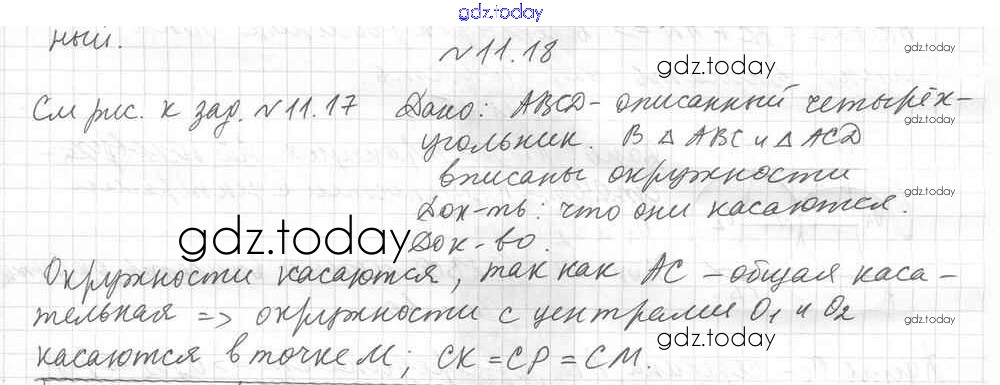 gdz.today
ный.
№ 11.18
gdz.today
gdz.today
См рис. к зад. № 11.17 Дано: ABCD - описанный четырёх-
угольник. В △ ABC и △ ACD
gdz.today
вписаны окружности
gdz.today
Док-ть: что они касаются.
gdz.today
Док-во.
Окружности касаются, так как AC - общая каса-
тельная => окружности с центрами O₁ и O₂
gdz.today
gdz.today
касаются в точке M; CK = CP = CM.